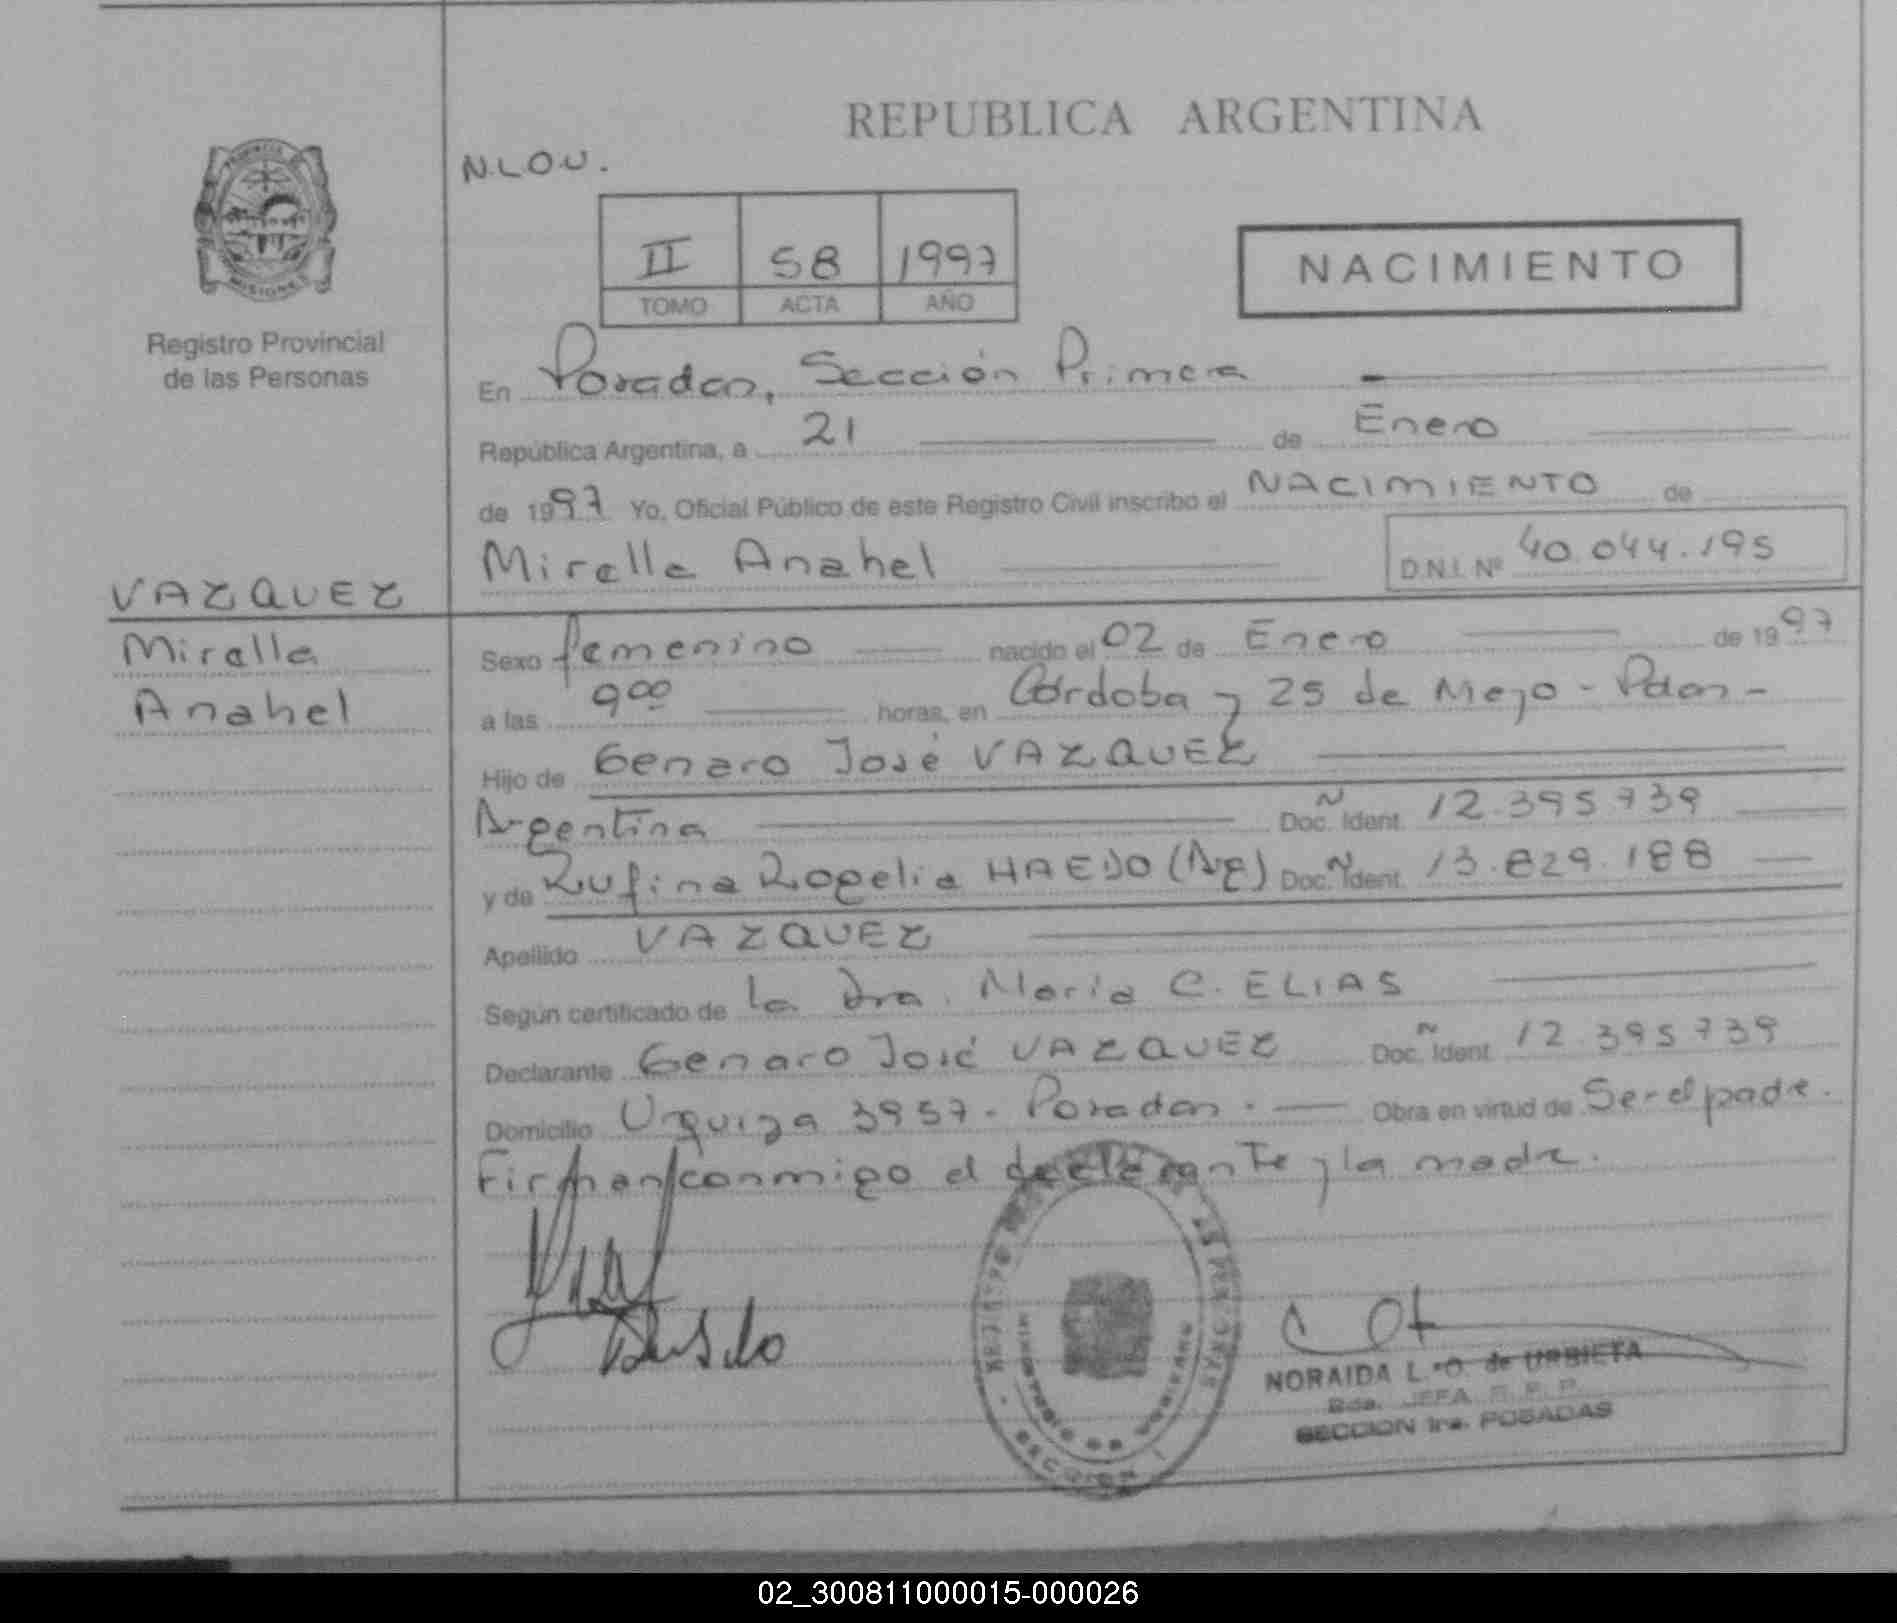 REPUBLICA ARGENTINA
N.L.O.U.
II 58 1997
TOMO ACTA AÑO
NACIMIENTO
PROVINCIA DE
MISIONES
Registro Provincial
de las Personas
En Posadas, Sección Primera
República Argentina, a 21 de Enero
de 1997 Yo, Oficial Público de este Registro Civil inscribo el NACIMIENTO de
Mirella Anahel D.N.I. Nº 40.044.195
VAZQUEZ
Mirella
Anahel
Sexo femenino nacido el 02 de Enero de 1997
a las 900 horas, en Córdoba y 25 de Mayo - Pdas -
Hijo de Genaro José VAZQUEZ
Argentina Doc. Ident. 12.395.739
y de Rufina Rogelia HAEDO (Arg) Doc. Ident. 13.829.188
Apellido VAZQUEZ
Según certificado de la Dra. María C. ELIAS
Declarante Genaro José VAZQUEZ Doc. Ident. 12.395.739
Domicilio Urquiza 3957 - Posadas. - Obra en virtud de Ser el padre.
Firman conmigo el declarante y la madre.
NORAIDA L. O. de URBIETA
JEFA R. P. P.
SECCION 1ra. POSADAS
02_300811000015-000026